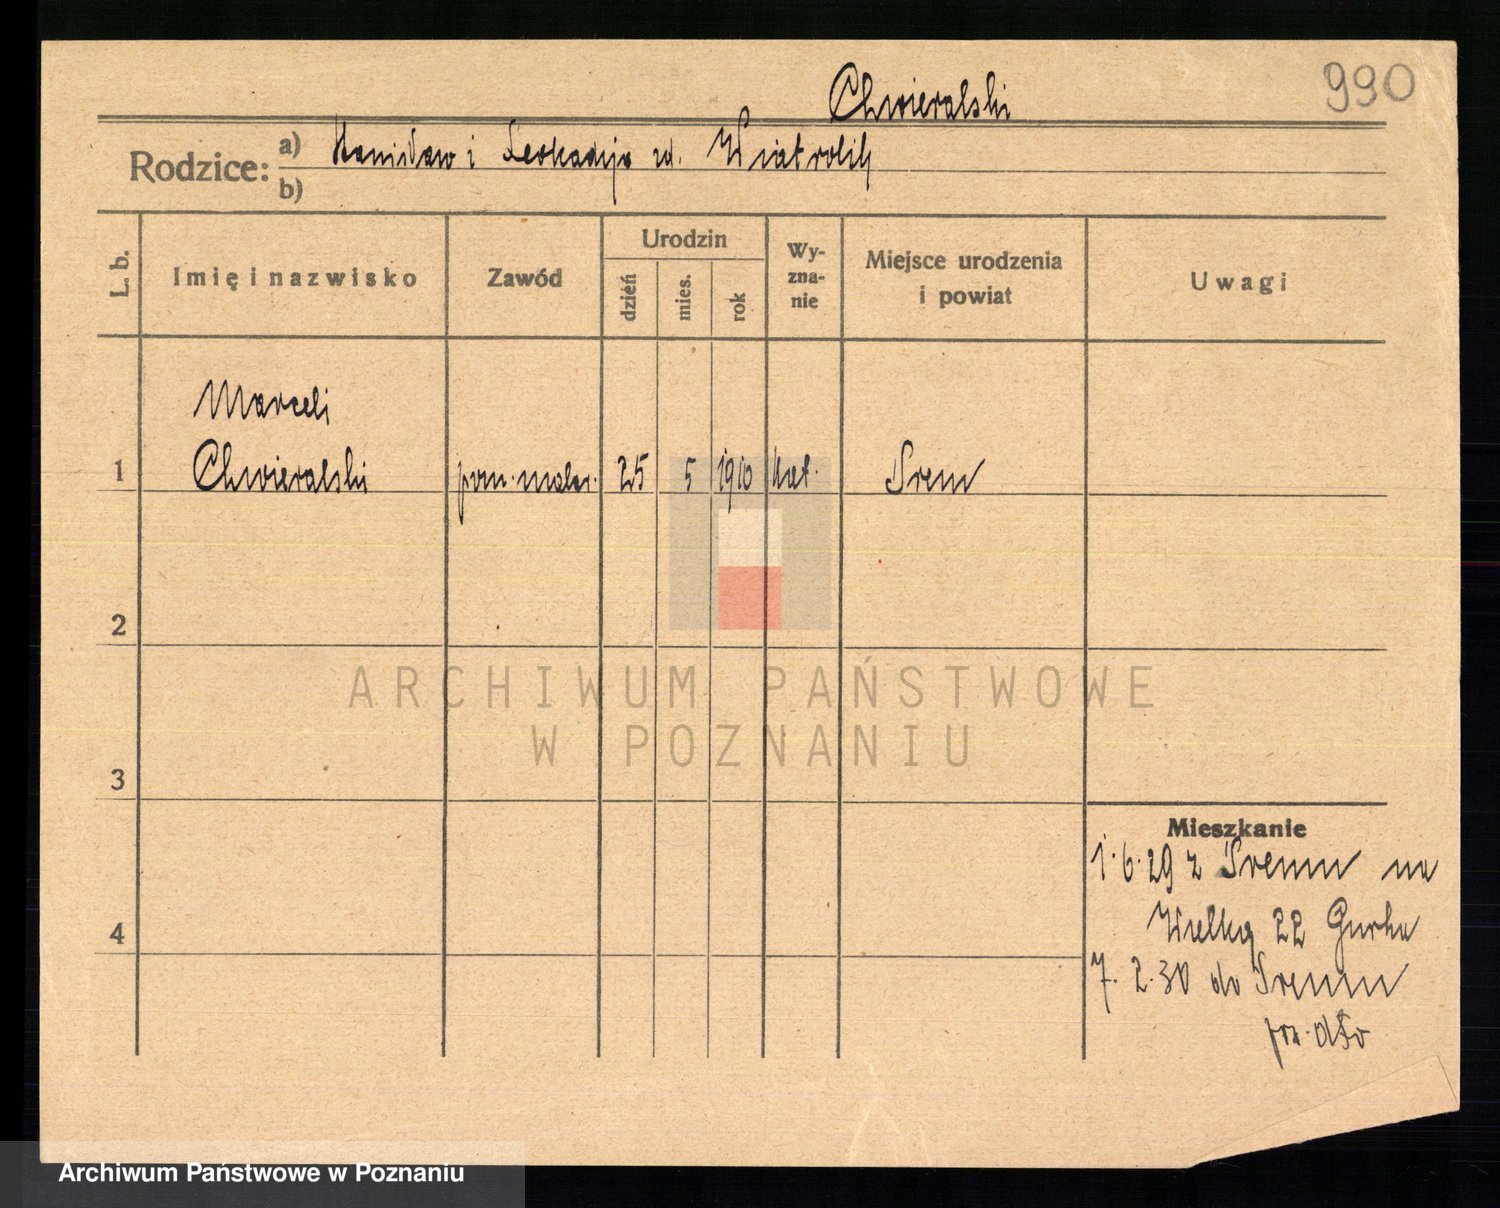 990
Chwieralski
Rodzice: a) Stanisław i Leokadja zd. Wiatrolik
b)
L. b.
Imię i nazwisko
Zawód
Urodzin
dzień
mies.
rok
Wy-
zna-
nie
Miejsce urodzenia
i powiat
Uwagi
Marceli
1 Chwieralski pom. malar. 25 5 1910 kat. Śrem
2
3
4
Mieszkanie
1.6.29 z Śremu na
Wielką 22 Gurka
7.2.30 do Śremu
ARCHIWUM PAŃSTWOWE
W POZNANIU
Archiwum Państwowe w Poznaniu